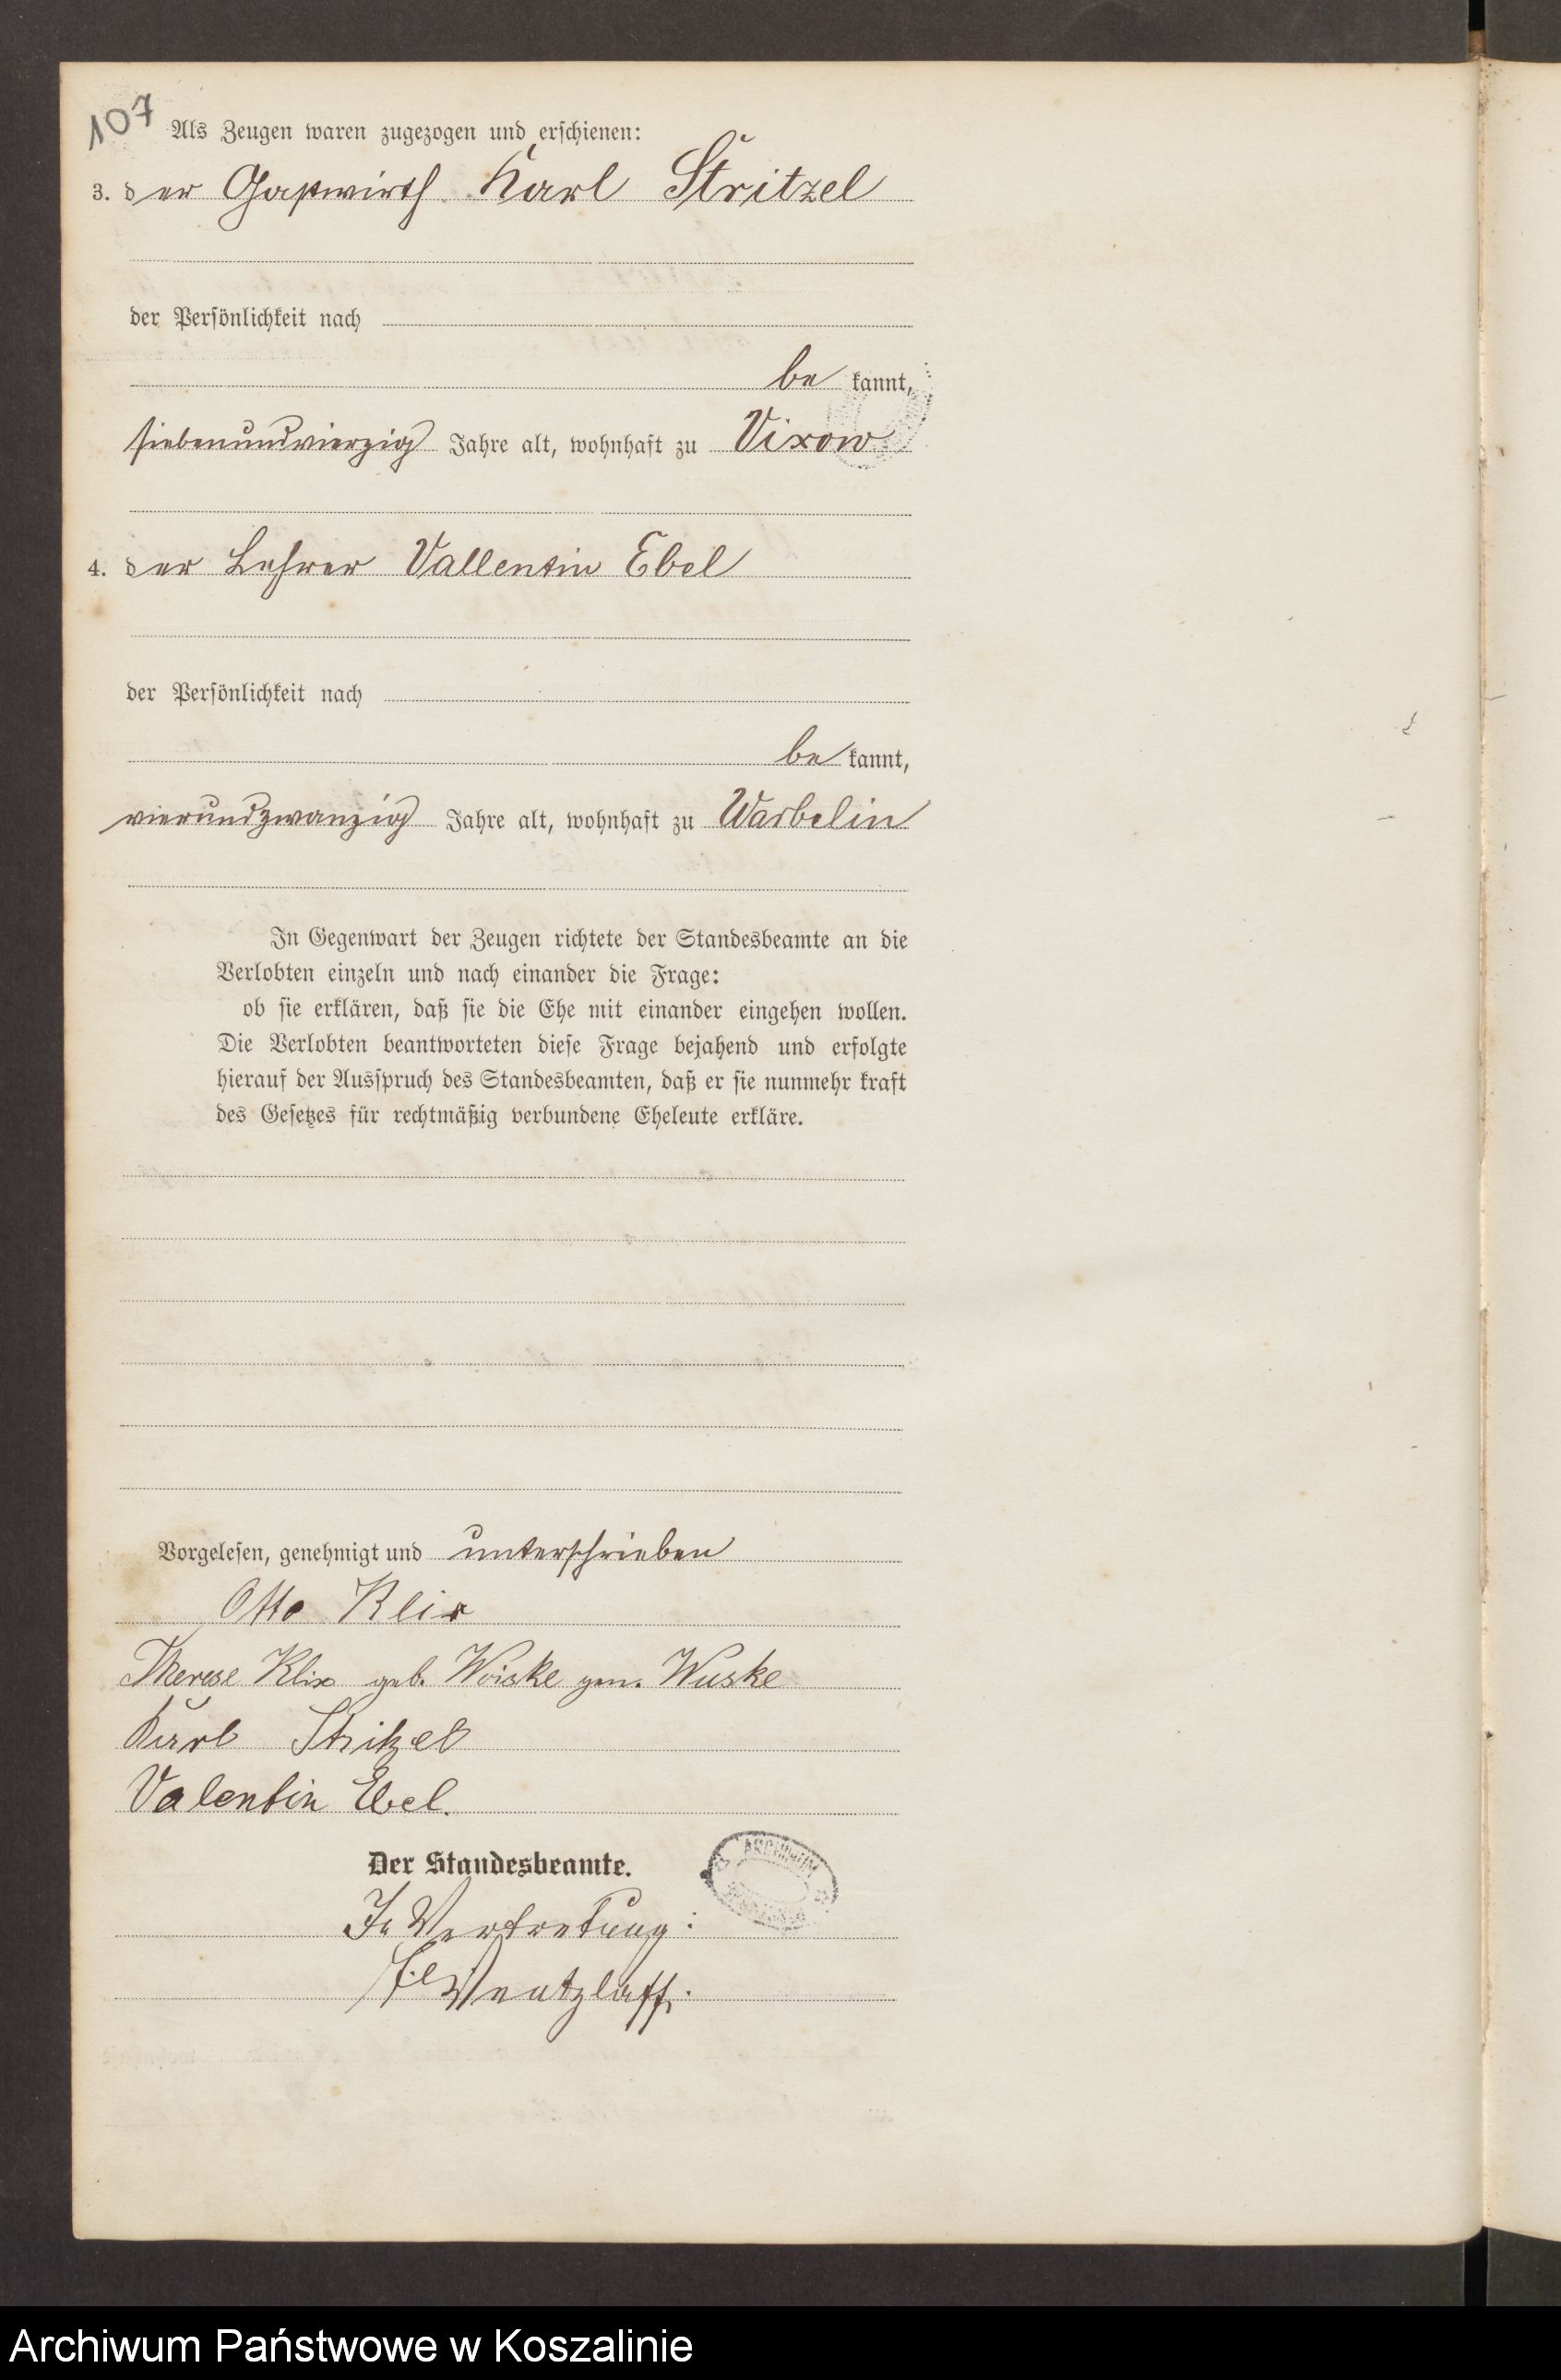 107
Als Zeugen waren zugezogen und erschienen:
3. der Gastwirth Karl Stritzel
der Persönlichkeit nach
be kannt,
siebenundvierzig Jahre alt, wohnhaft zu Vixow
4. der Lehrer Vallentin Ebel
der Persönlichkeit nach
be kannt,
vierundzwanzig Jahre alt, wohnhaft zu Warbelin
In Gegenwart der Zeugen richtete der Standesbeamte an die
Verlobten einzeln und nach einander die Frage:
ob sie erklären, daß sie die Ehe mit einander eingehen wollen.
Die Verlobten beantworteten diese Frage bejahend und erfolgte
hierauf der Ausspruch des Standesbeamten, daß er sie nunmehr kraft
des Gesetzes für rechtmäßig verbundene Eheleute erkläre.
Vorgelesen, genehmigt und unterschrieben
Otto Klix
Therese Klix geb. Woiske gen. Wuske
Karl Stritzel
Valentin Ebel.
Der Standesbeamte.
In Vertretung:
Wentzlaff.
ARCHIWUM
Archiwum Państwowe w Koszalinie